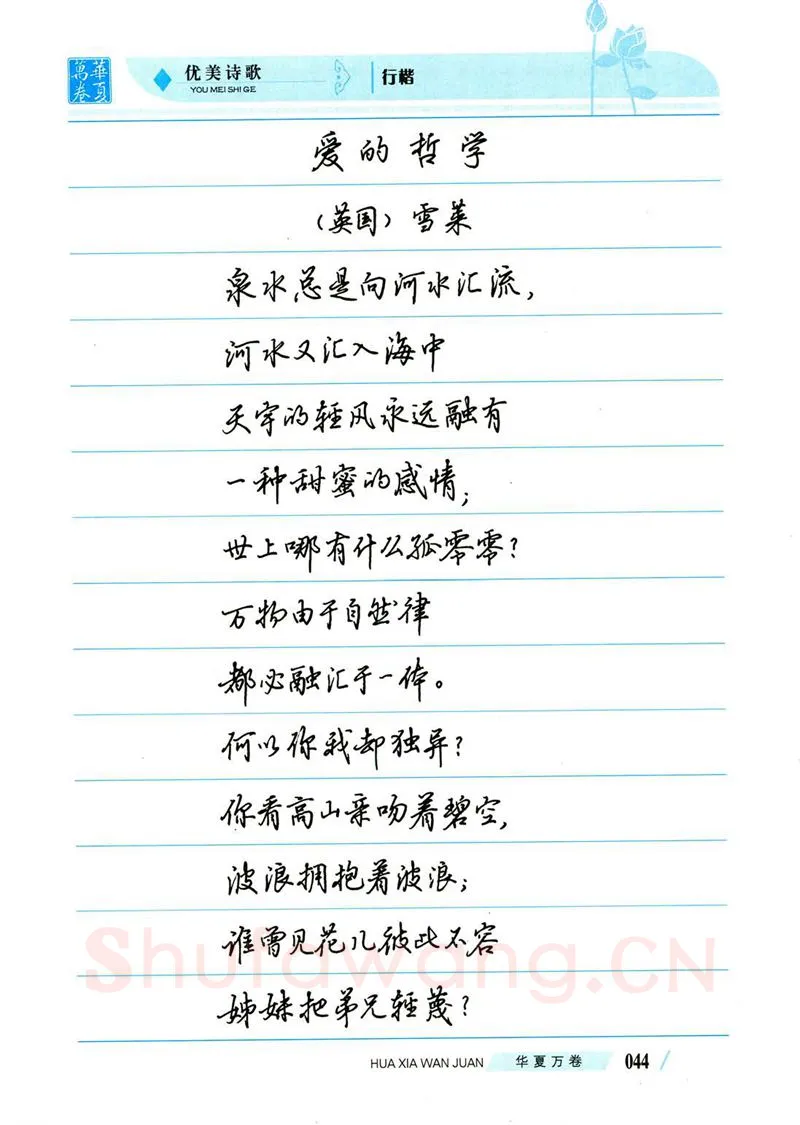 華夏萬卷
优美诗歌
YOU MEI SHI GE
行楷
爱的哲学
（英国）雪莱
泉水总是向河水汇流，
河水又汇入海中
天宇的轻风永远融有
一种甜蜜的感情；
世上哪有什么孤零零？
万物由于自然律
都必融汇于一体。
何以你我却独异？
你看高山亲吻着碧空，
波浪拥抱着波浪；
谁曾见花儿彼此不容
姊妹把弟兄轻蔑？
Shufawang.CN
HUA XIA WAN JUAN
华夏万卷
044